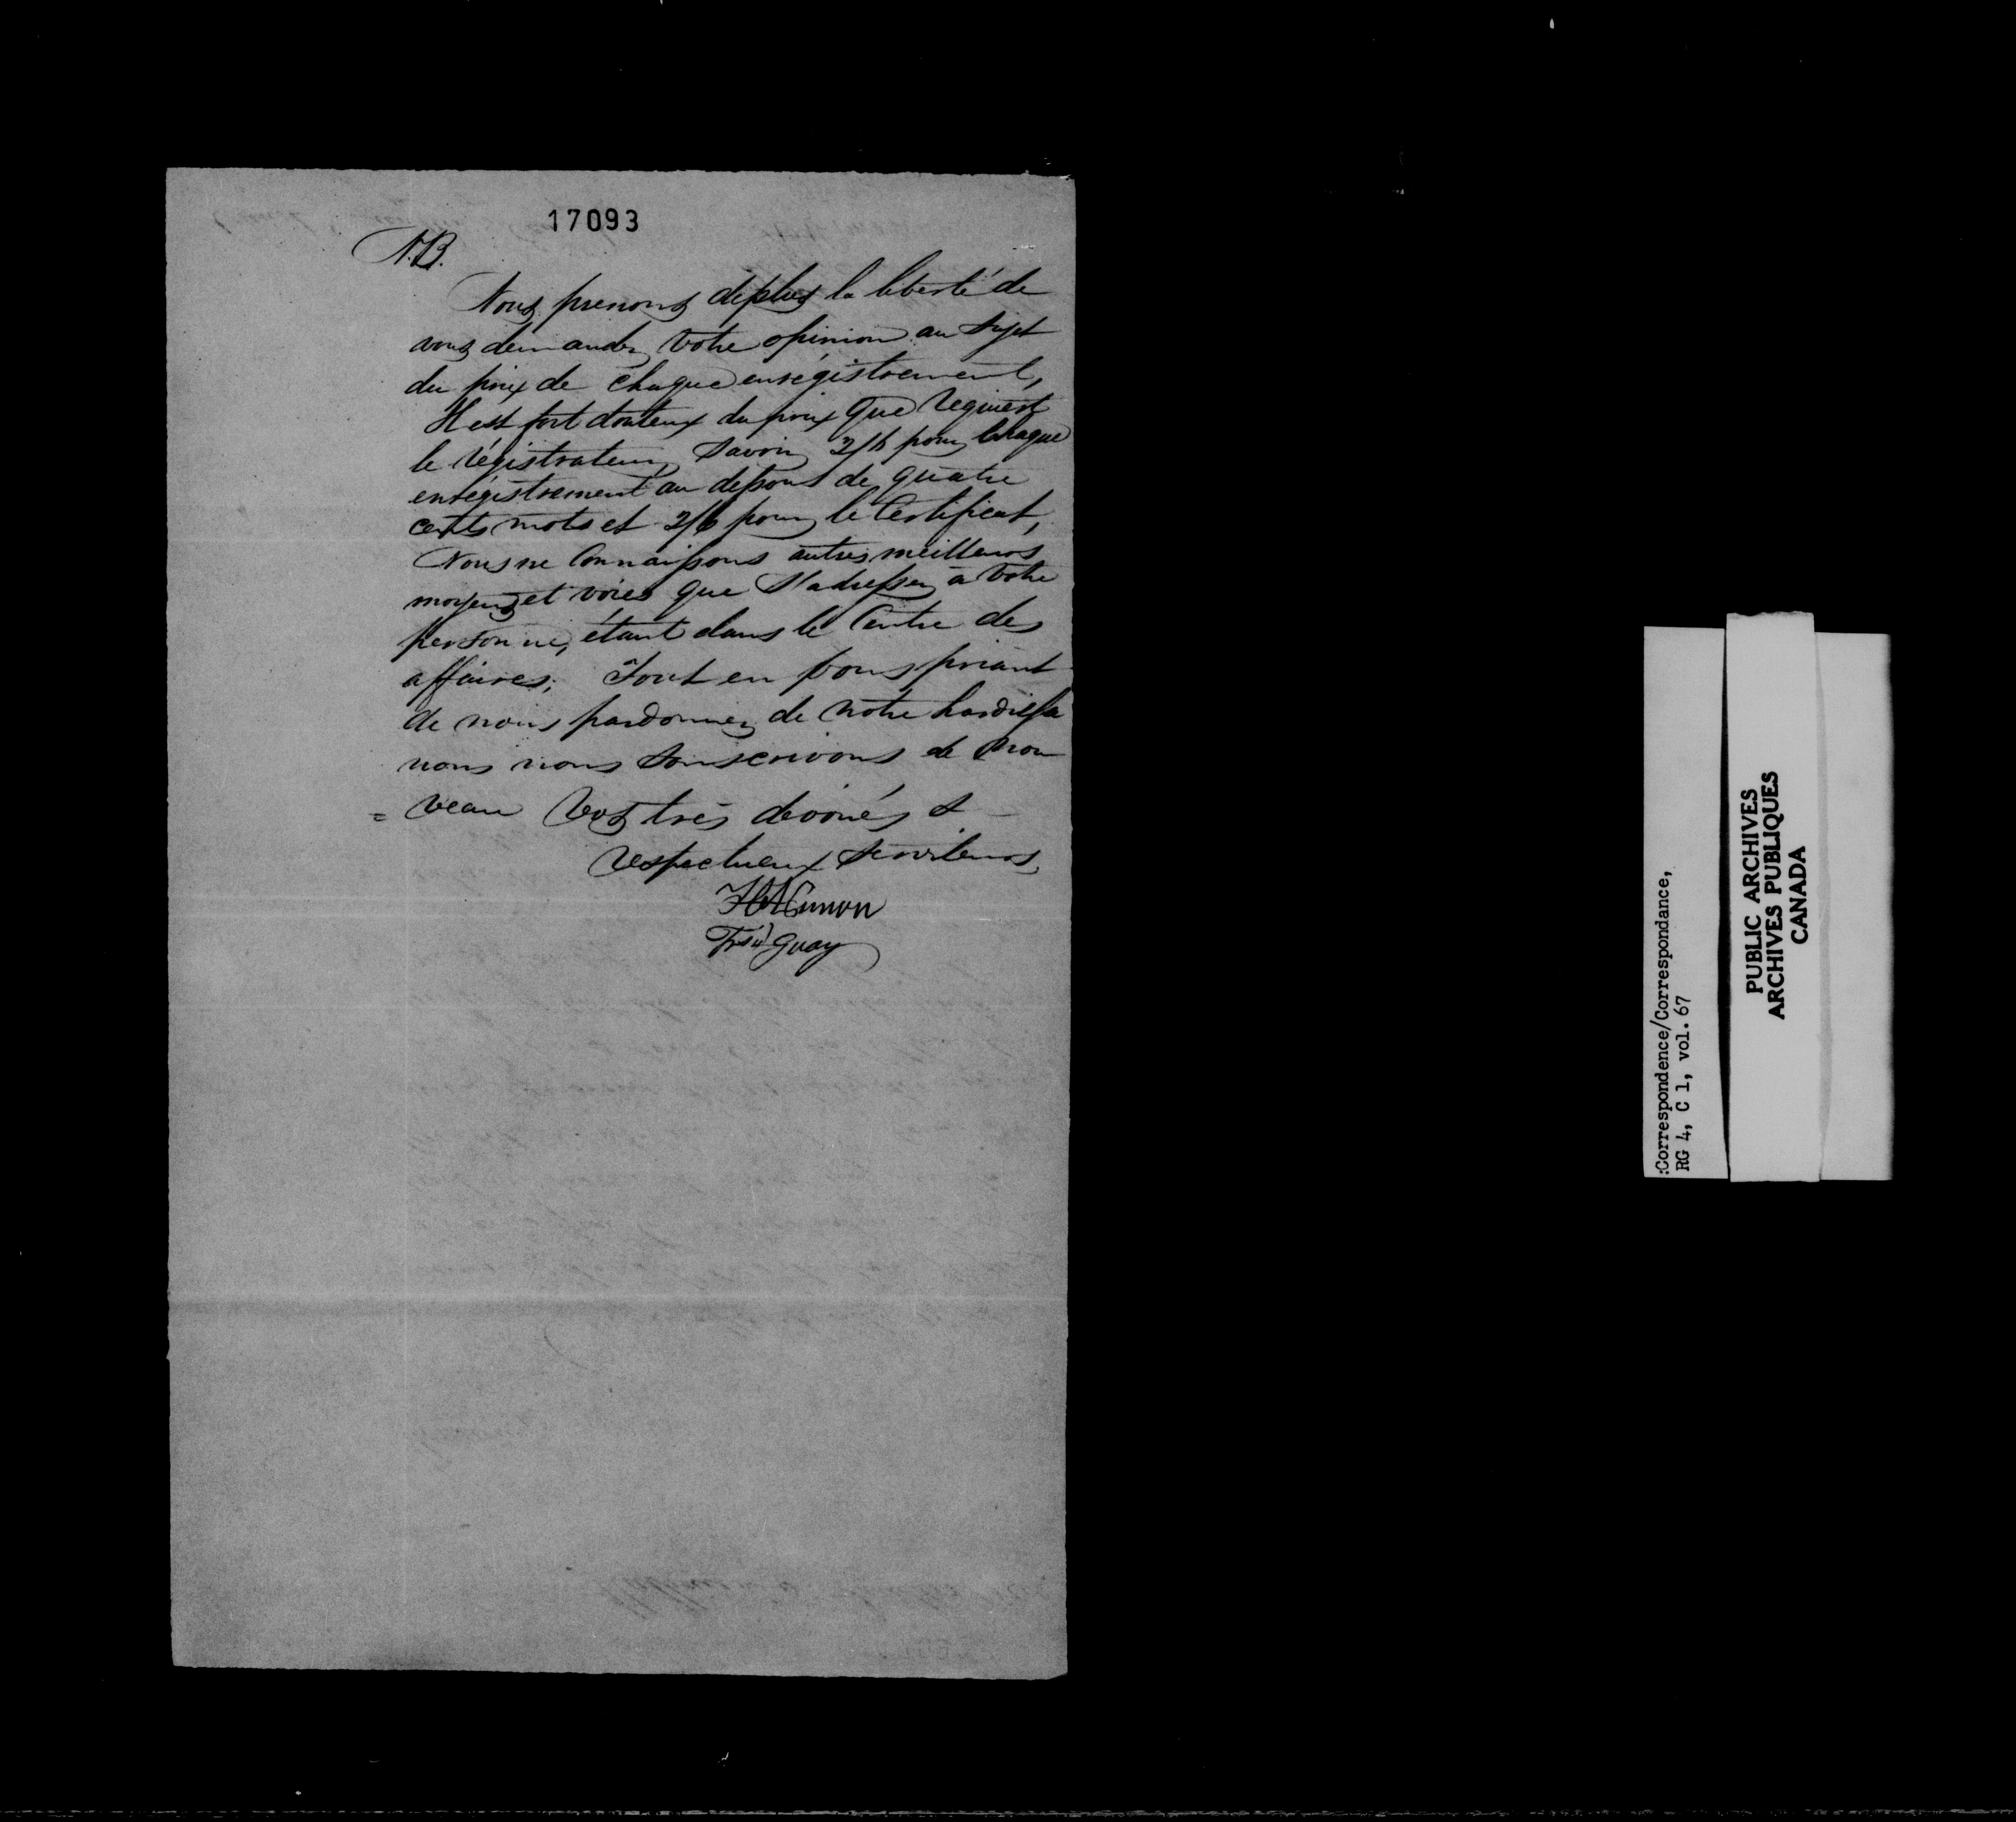 17093
N.B.
Nous prenons deplus la liberté de
vous demander votre opinion au sujet
du prix de chaque enrégistrement,
Il est fort douteux du prix que requiert
le régistrateur, savoir 2/6 pour chaque
enrégistrement au dessous de quatre
cents mots et 2/6 pour le Certificat,
Nous ne Connaissons autres meilleurs
moyens et voies que s'adresser à votre
personne, étant dans le Centre des
affaires; Tout en vous priant
de nous pardonner de notre hardiesse
nous nous souscrivons de nou
= veau Vos très dévoués &
respectueux serviteurs,
Guay
:Correspondence/Correspondance,
RG 4, C 1, vol. 67
PUBLIC ARCHIVES
ARCHIVES PUBLIQUES
CANADA